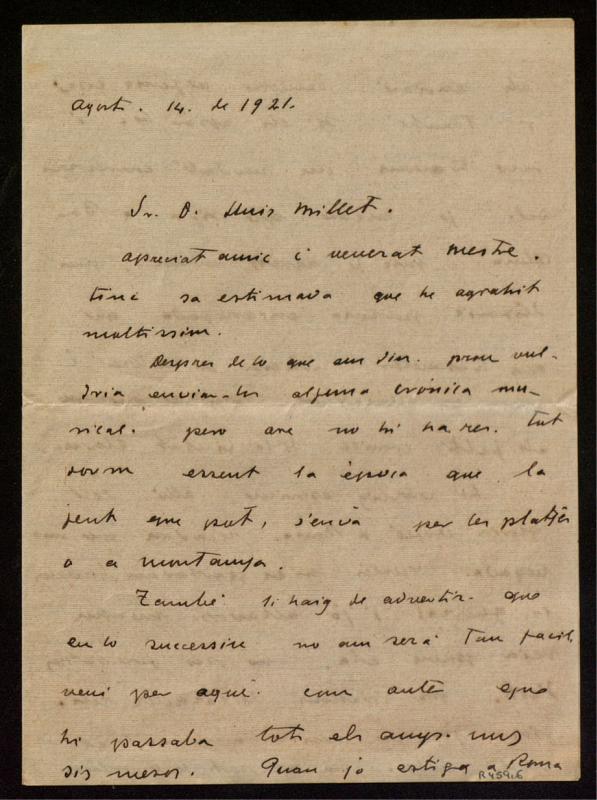 Agost. 14. de 1921.
Sr. D. Lluis Millet.
Apreciat amic i venerat mestre.
Tinc sa estimada que he agrahit
moltissim.
Despres de lo que am diu. prou vul-
dria enviar-los alguna crónica mu-
sical. pero are no hi ha res. tot
dorm essent la época que la
jent que pot, s'envà per les platjes
o a montanya.
També li haig de advertir que
en lo successiu no am será tan facil
veni per aquí. com antes que
hi passaba tots els anys. uns
sis mesos. Quan jo estiga a Roma
R459.6